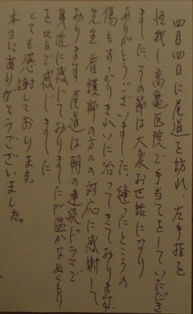 四月四日に尾道を訪れ、左手指を
怪我し高亀医院で手当てをしていただき
ました。その節は大変お世話になり
ありがとうございました。縫ったところの
傷もすっかりきれいに治ってきております。
先生、看護師の方々の対応に感謝して
おります。尾道は朝の連続ドラマで
身近に感じておりましたが温かなぬくもり
を現地で感じました
とても感謝しております。
本当にありがとうございました。